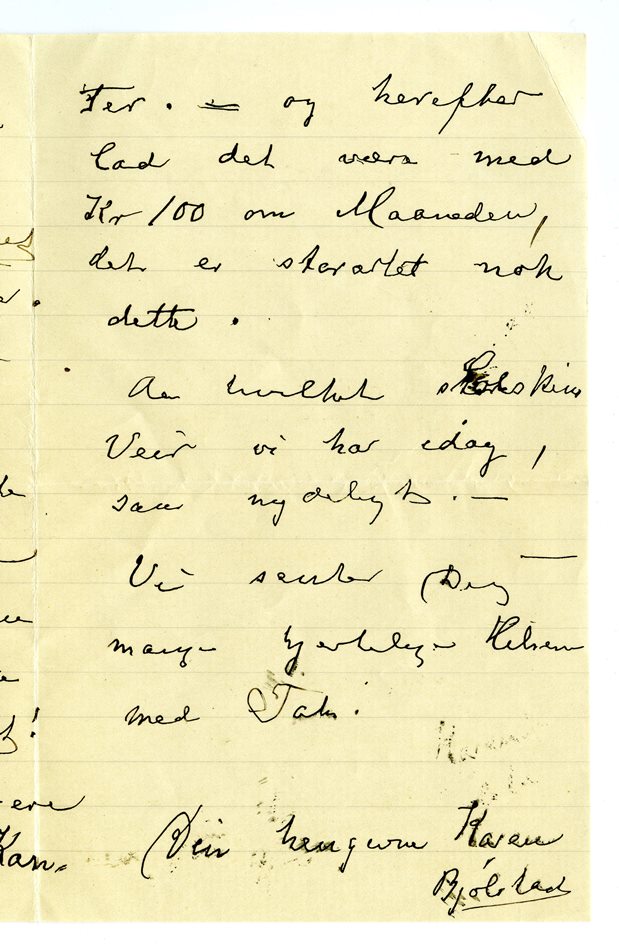 og herefter
lad det være med
Kr 100 om Maaneden,
det er storartet nok
dette.
Aa hvilket Solskins
Veir vi har idag,
saa nydeligt. —
Vi sender Dig
mange hjertelige Hilsener
med Tak.
Din hengivne Karen
Bjølstad